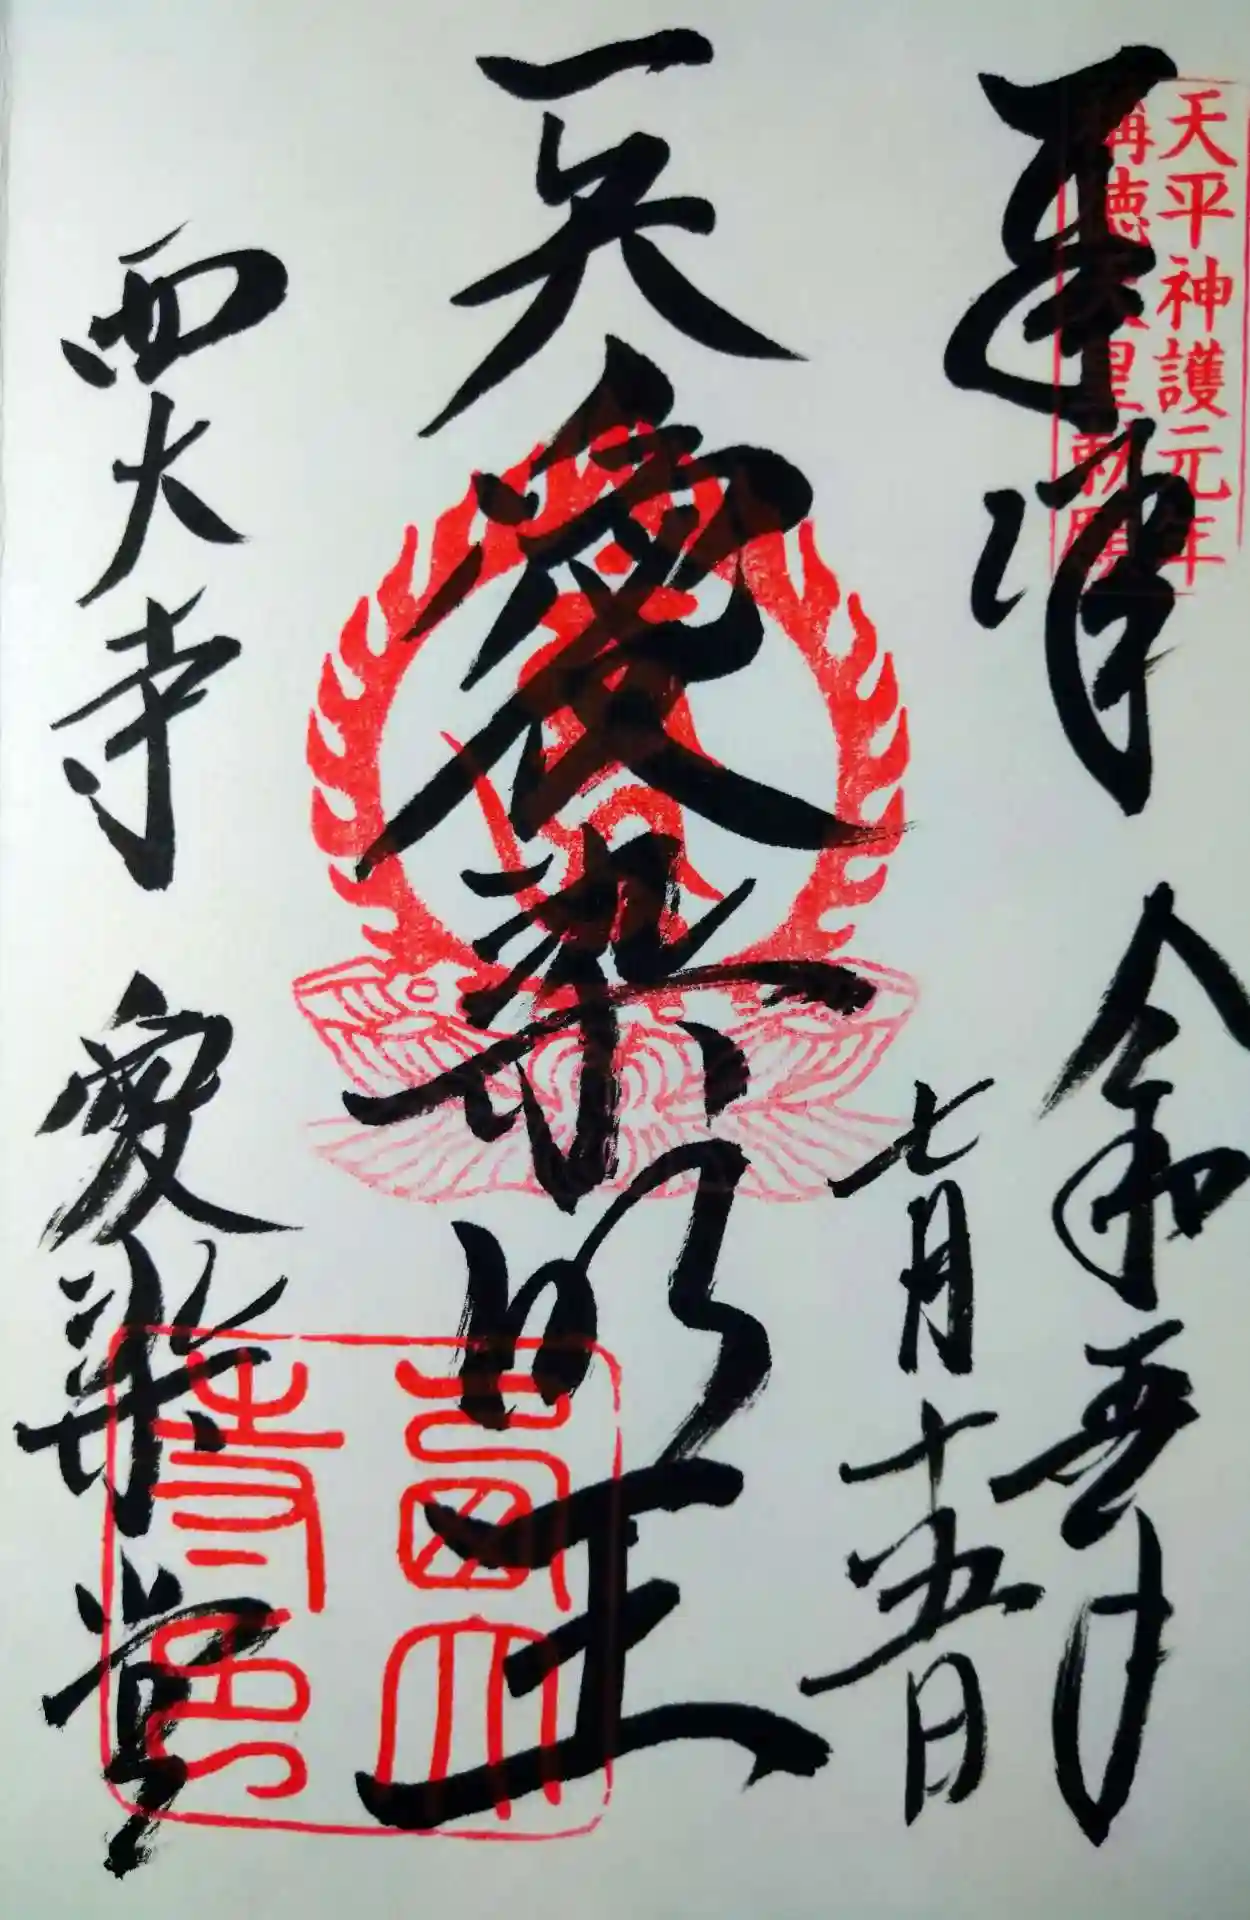 天平神護元年
稱徳天皇勅願
奉拝 令和五年
七月十五日
愛染明王
西大寺 愛染堂
西大
寺印